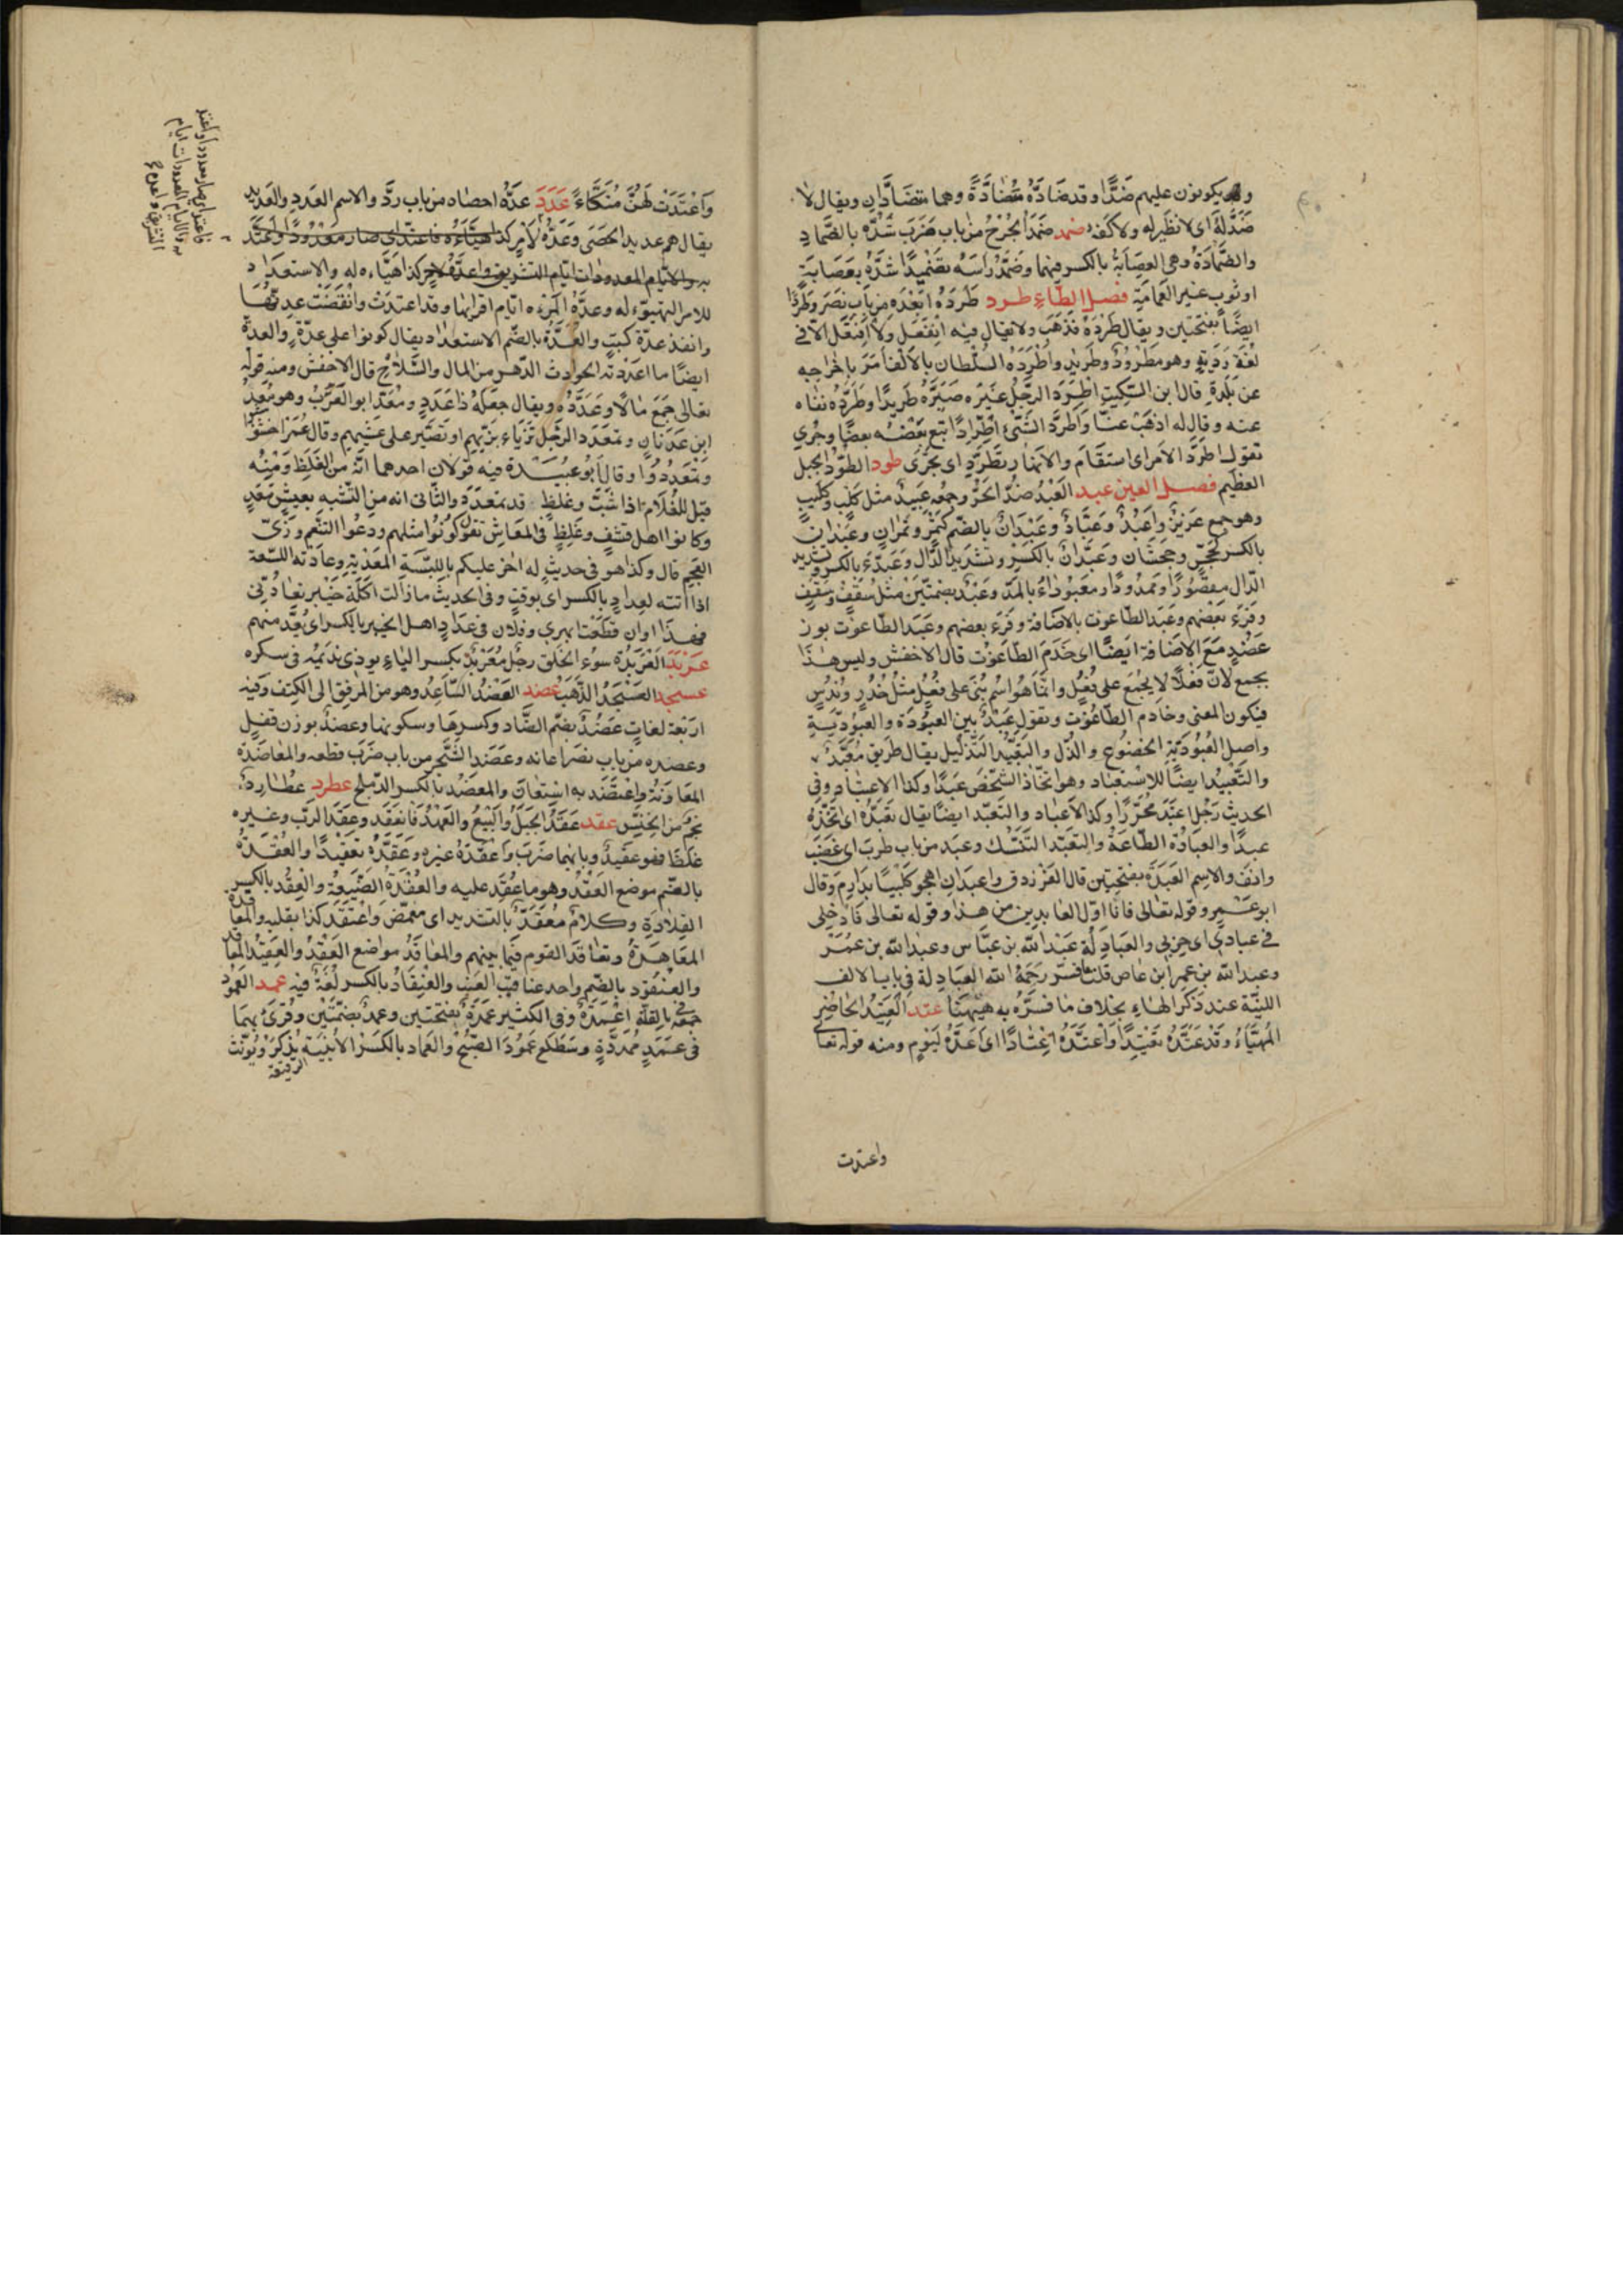 ويكونون عليهم ضدا وقد ضاده مضادة وهما متضادان ويقال لا
ضد له اى لا نظير له ولا كفء ضمد ضمد الجرح من باب ضرب شده بالضماد
والضمادة وهى العصابة بالكسر فيهما وضمد رأسه تضميدا شده بعصابة
او ثوب غير العمامة فصل الطاء طرد طرده ابعده من باب نصر وطردا
ايضا بفتحتين ويقال طرده فذهب ولا يقال فيه انفعل ولا افتعل الا فى
لغة ردية وهو مطرود وطريد واطرده السلطان بالالف امر باخراجه
عن بلدة قال ابن السكيت اطرد الرجل غيره صيره طريدا وطرده نفاه
عنه وقال له اذهب عنا واطرد الشئ اطرادا تبع بعضه بعضا وجرى
تقول اطرد الامر اى استقام والانهار تطرد اى تجرى طود الطود الجبل
العظيم فصل العين عبد العبد ضد الحر وجمعه عبيد مثل كلب وكليب
وهو جمع عزيز واعبد وعباد وعبدان بالضم كتمر وتمران وعبدان
بالكسر كجحش وجحشان وعبدان بالكسر وتشديد الدال وعبدى بالكسر وتشديد
الدال مقصورا وممدودا ومعبوداء بالمد وعبد بضمتين مثل سقف وسقف
وقرئ بعضهم وعبد الطاغوت بالاضافة وقرء بعضهم وعبد الطاغوت بوزن
عضد مع الاضافة ايضا اى خدم الطاغوت قال الاخفش وليس هذا
بجمع لان فعلا لا يجمع على فعل وانما هو اسم بنى على فعل مثل حذر وندس
فيكون المعنى وخادم الطاغوت وتقول عبد بين العبودة والعبودية
واصل العبودية الخضوع والذل والتعبيد التذليل يقال طريق معبد
والتعبيد ايضا للاستعباد وهو اتخاذ الشخص عبدا وكذا الاعتباد وفى
الحديث رجل اعتبد محررا وكذا الاعباد والتعبد ايضا يقال تعبده اى اتخذه
عبدا والعبادة الطاعة والتعبد التنسك وعبد من باب طرب اى غضب
وانف والاسم العبدة بفتحتين قال الفرزدق واعبد ان اهجو كليبا بدارم وقال
ابو عمير وقوله تعالى فانا اول العابدين من هذا وقوله تعالى فادخلى
فى عبادى اى حزبى والعبادلة عبد الله بن عباس وعبد الله بن عمر
وعبد الله بن عمر ابن عاص قلت فسر رحمه الله العبادلة فى باب الالف
اللينة عند ذكر الهاء بخلاف ما فسره به هيهنا عتد العتيد الحاضر
المهيأ وقد عتده تعتيدا واعتده اعتادا اى اعده ليوم ومنه قوله تعا
واعتدت
واعتدت لهن متكاء عدد عده احصاه من باب رد والاسم العدد والعديد
يقال هم عديد الحصى وعده لامر كذا هيأه فاعتد اى صار معدودا واعتد
به والايام المعدودات ايام التشريق واعده لامر كذا هياءه له والاستعداد
للامر التهيؤ له وعدة المرءة ايام اقرائها وقد اعتدت وانقضت عدتها
وانفذ عدة كتب والعدة بالضم الاستعداد يقال كونوا على عدة والعدة
ايضا ما اعددته لحوادث الدهر من المال والسلاح قال الاخفش ومنه قوله
تعالى جمع مالا وعدده ويقال جعله ذا عدد ومعد ابو العرب وهو معد
ابن عدنان وتمعدد الرجل تزياء بزيهم او تصبر على عيشهم وقال عمر اخشوشنوا
وتمعددوا وقال ابو عبيدة فيه قولان احدهما انه من الغلظ ومنه
قيل للغلام اذا شب وغلظ قد تمعدد والثانى انه من التشبه بعيش معد
وكانوا اهل قشف وغلظ فى المعاش تقول كونوا مثلهم ودعوا التنعم وزى
العجم قال وكذا هو فى حديث له اخر عليكم باللبسة المعدية وعادته اللسعة
اذا اتته لعداد بالكسر اى بوقت وفى الحديث ما زالت اكلة خيبر تعادنى
فهذا اوان قطعت ابهرى وفلان فى عداد اهل الخير بالكسر اى يعد منهم
عربد العربدة سوء الخلق رجل معربد بكسر الباء يوذى نديمه فى سكره
عسجد العسجد الذهب عضد العضد الساعد وهو من المرفق الى الكتف وفيه
اربعة لغات عضد بضم الضاد وكسرها وسكونها وعضد بوزن قفل
وعضده من باب نصر اعانه وعضد الشجر من باب ضرب قطعه والمعاضدة
المعاونة واعتضد به استعان والمعضد بالكسر الدملج عطرد عطارد
نجم من الخنس عقد عقد الحبل والبيع والعهد فانعقد وعقد الرب وغيره
غلظ فهو عقيد وبابهما ضرب واعقده غيره وعقده تعقيدا والعقدة
بالضم موضع العقد وهو ما عقد عليه والعقدة الضيعة والعقد بالكسر
القلادة وكلام معقد بالتشديد اى مغمض واعتقد كذا بقلبه والمعاقدة
المعاهدة وتعاقد القوم فيما بينهم والمعاقد مواضع العقد والعقيد المعاقد
والعنقود بالضم واحد عناقيد العنب والعنقاد بالكسر لغة فيه عمد العمود
جمعه فى القلة اعمدة وفى الكثير عمد بفتحتين وعمد بضمتين وقرئ بهما
فى عمد ممددة وسطع عمود الصبح والعماد بالكسر الابنية يذكر ويؤنث
الرفيعة
فاعتد اى صار معدودا واعتد
به والايام المعدودات ايام
التشريق واعده